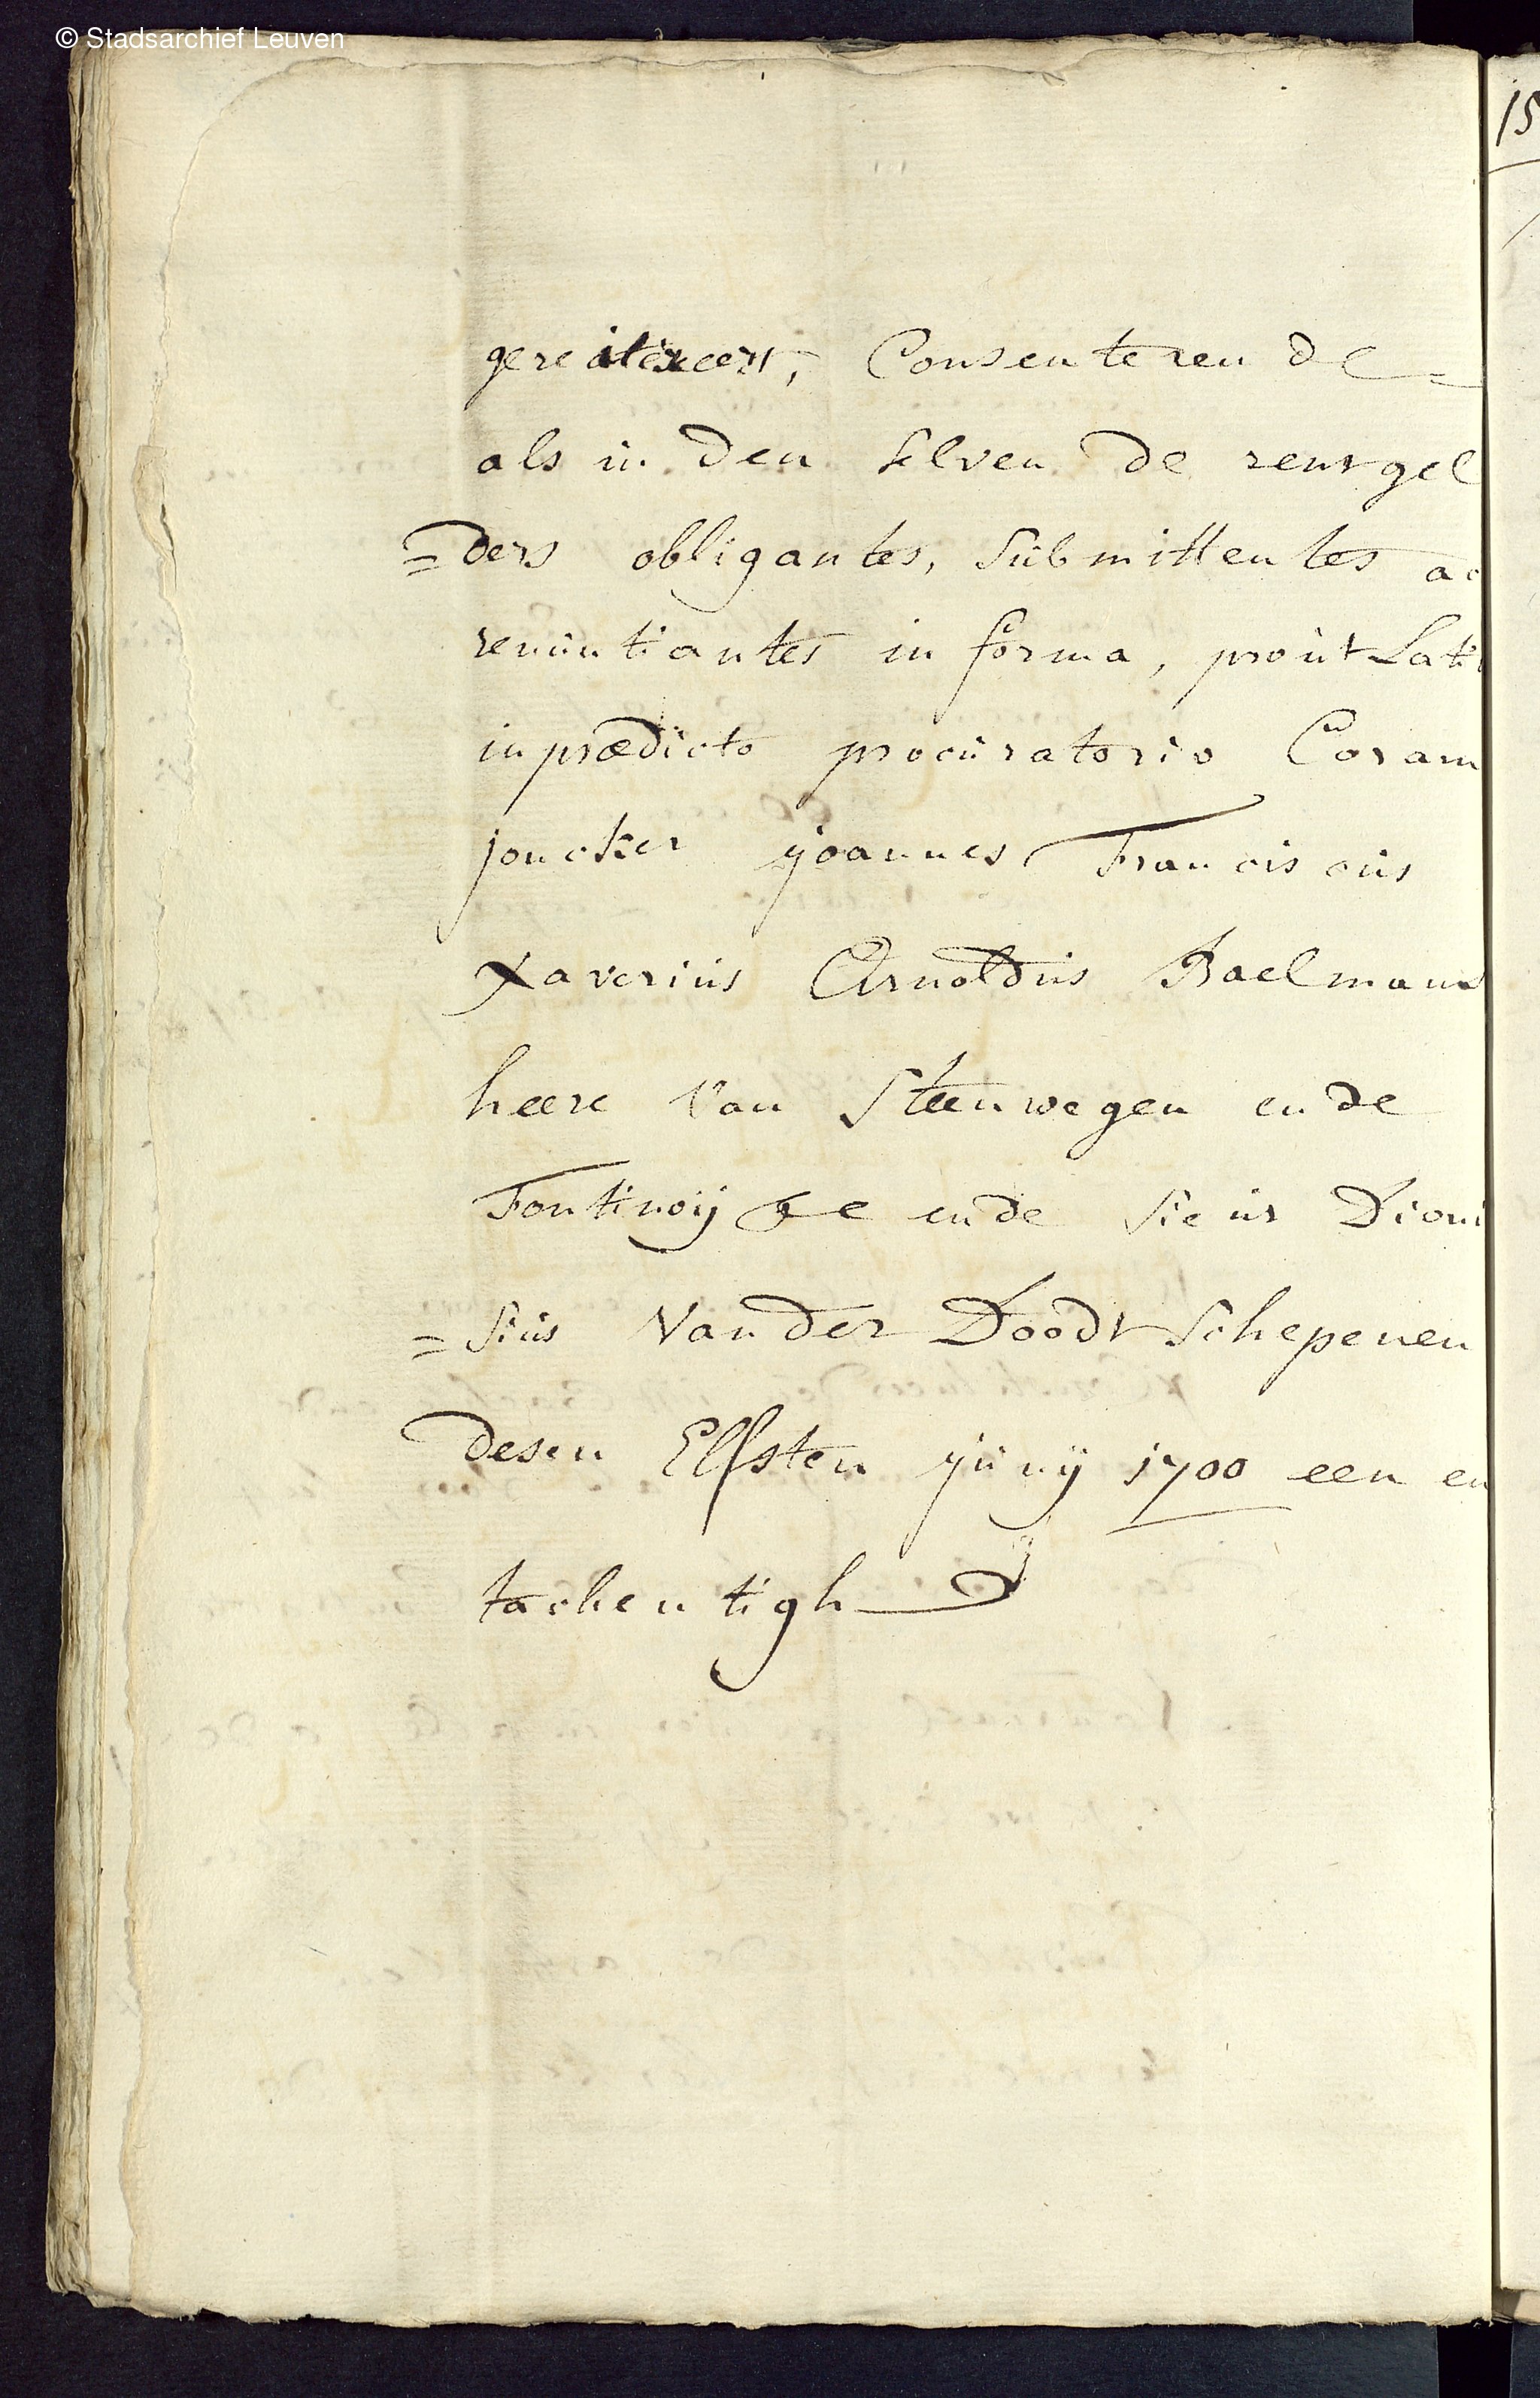 © Stadsarchief Leuven
15
gereitereert, Consenterende =
als in den selven de rentgel
= ders obligantes, submittentes ac
renuntiantes in forma, prout Lati
in prædicto procuratorio Coram
joncker joannes Franciscus
Xaverius Arnoldus Baelmans
heere Van Steenwegen ende
Fontinoij &c ende sieur Dioni
= sius Vander Doodt Schepenen
desen Elfsten junij 1700 een en
tachentigh